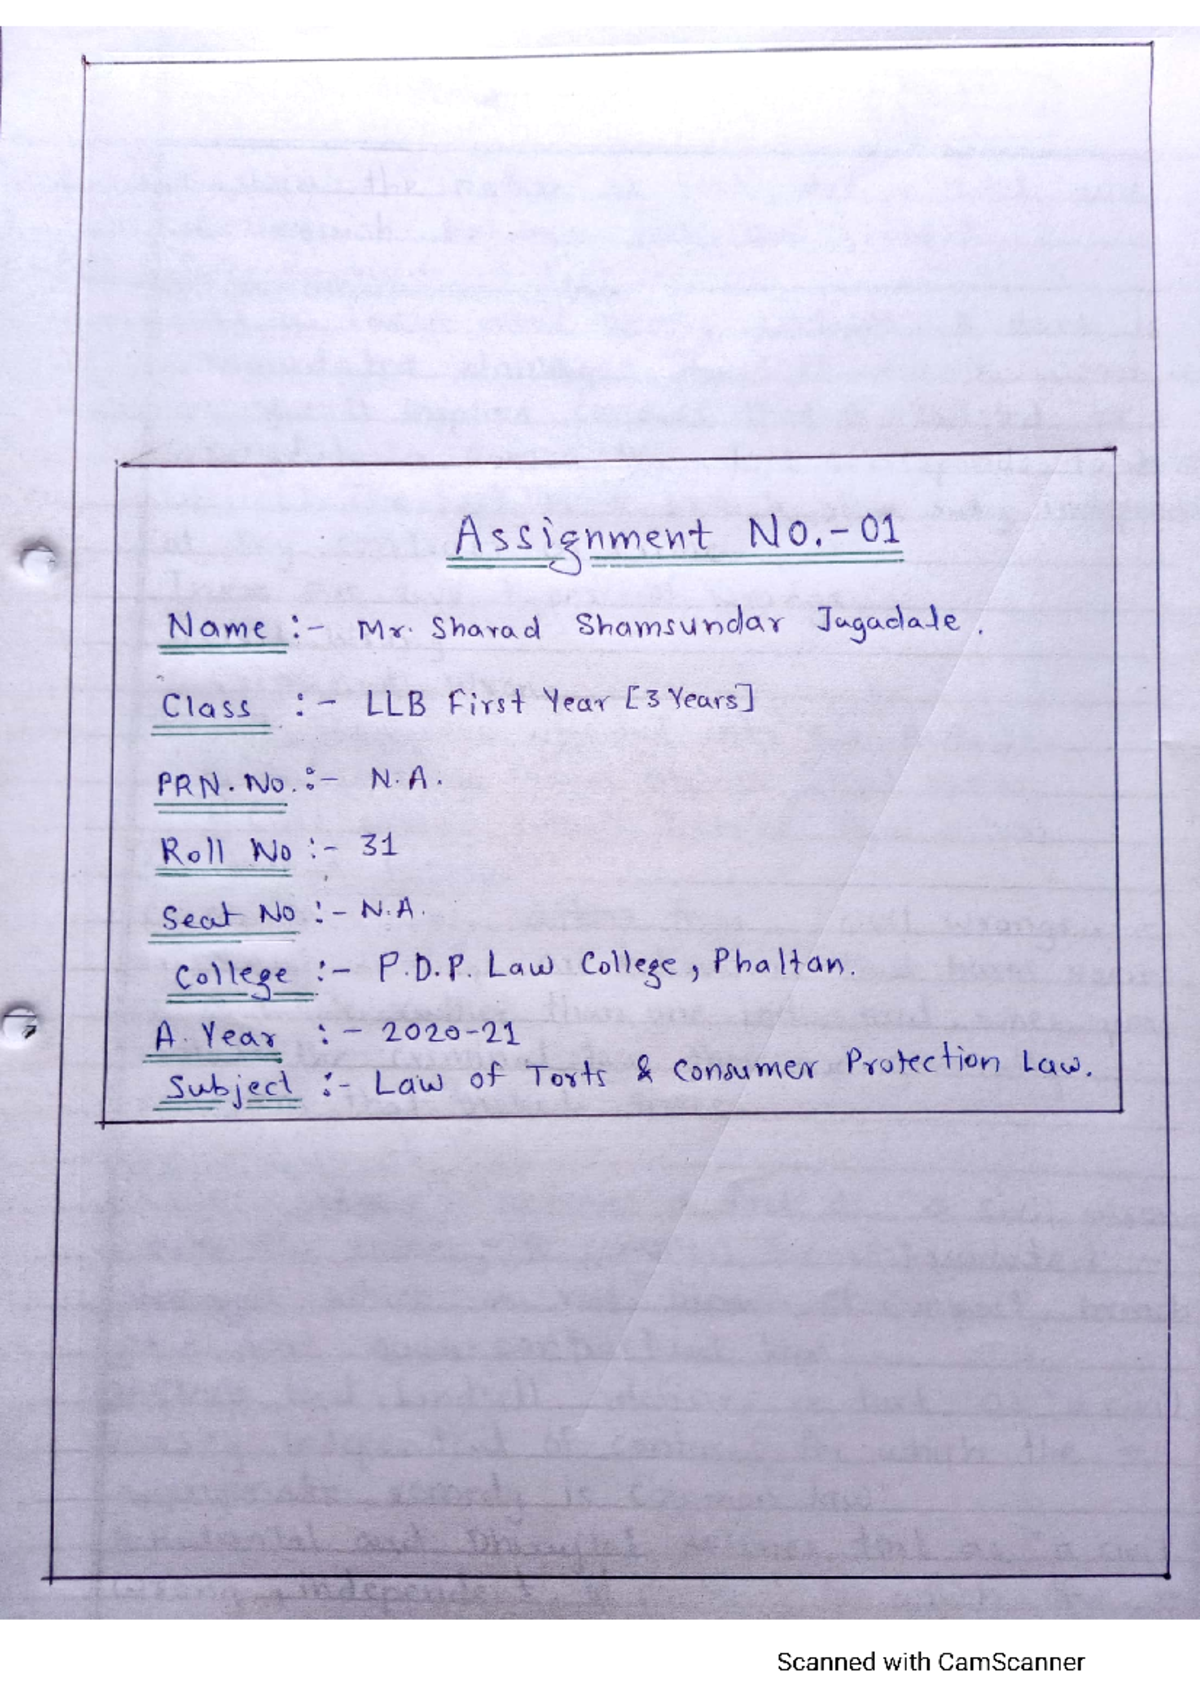 Assignment No.-01
Name :- Mr. Sharad Shamsundar Jagadale.
Class :- LLB First Year [3 Years]
PRN. No. :- N.A.
Roll No :- 31
Seat No :- N.A.
College :- P.D.P. Law College, Phaltan.
A. Year :- 2020-21
Subject :- Law of Torts & Consumer Protection Law.
Scanned with CamScanner